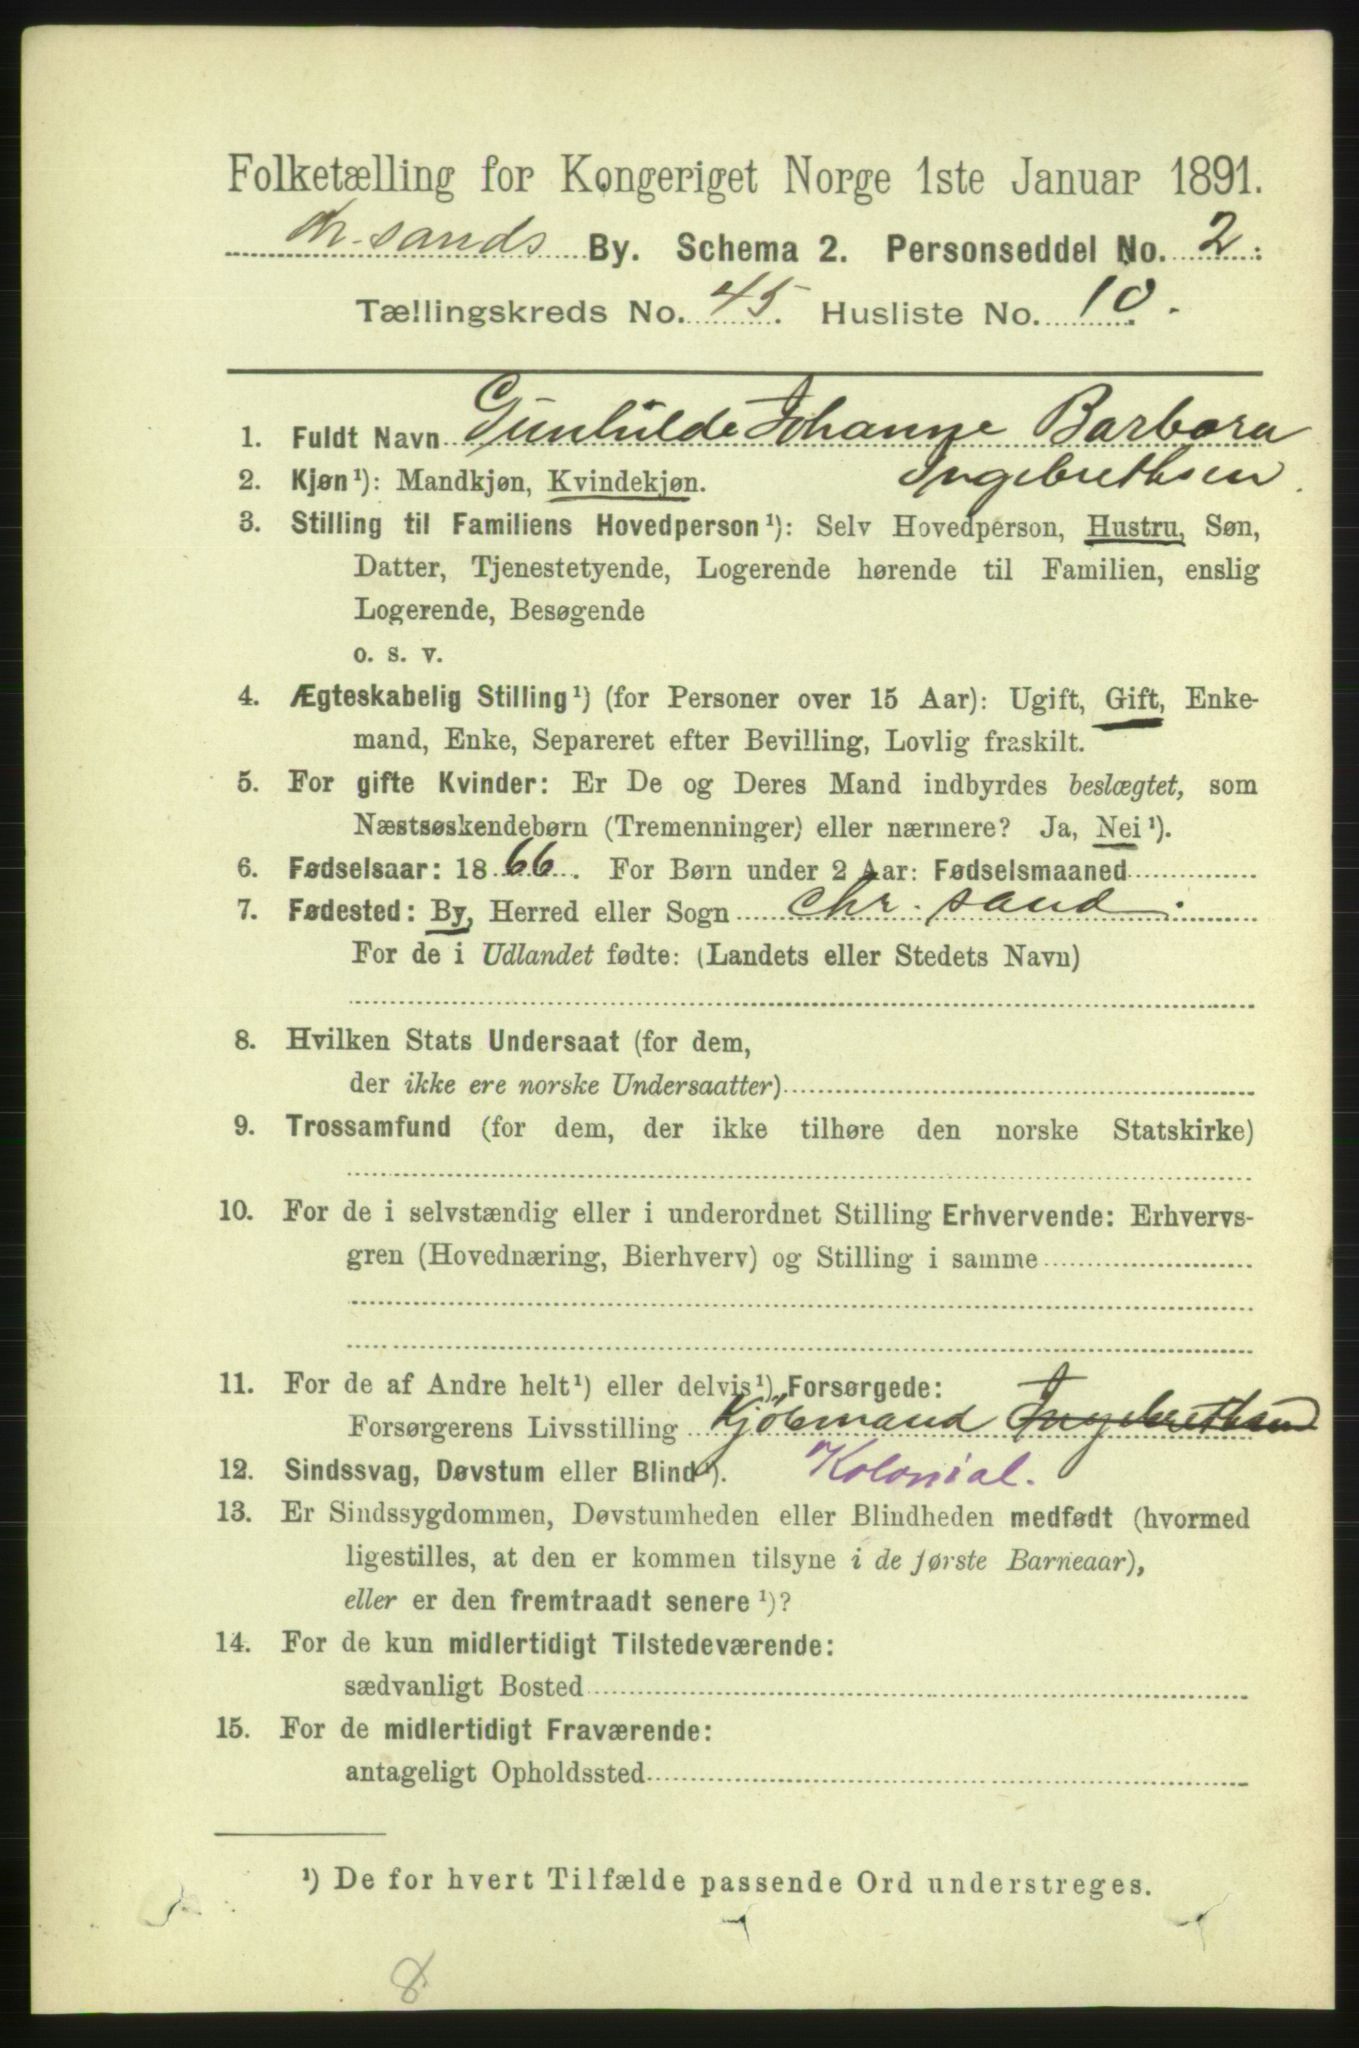 Folketælling for Kongeriget Norge 1ste Januar 1891.
Chr. sands By. Schema 2. Personseddel No. 2.
Tællingskreds No. 45. Husliste No. 10.
1. Fuldt Navn Gunhilde Johanne Barbara
Ingebrethsen.
2. Kjøn¹): Mandkjøn, Kvindekjøn.
3. Stilling til Familiens Hovedperson¹): Selv Hovedperson, Hustru, Søn,
Datter, Tjenestetyende, Logerende hørende til Familien, enslig
Logerende, Besøgende
o. s. v.
4. Ægteskabelig Stilling¹) (for Personer over 15 Aar): Ugift, Gift, Enke-
mand, Enke, Separeret efter Bevilling, Lovlig fraskilt.
5. For gifte Kvinder: Er De og Deres Mand indbyrdes beslægtet, som
Næstsøskendebørn (Tremenninger) eller nærmere? Ja, Nei¹).
6. Fødselsaar: 1866. For Børn under 2 Aar: Fødselsmaaned
7. Fødested: By, Herred eller Sogn Chr. sand.
For de i Udlandet fødte: (Landets eller Stedets Navn)
8. Hvilken Stats Undersaat (for dem,
der ikke ere norske Undersaatter)
9. Trossamfund (for dem, der ikke tilhøre den norske Statskirke)
10. For de i selvstændig eller i underordnet Stilling Erhvervende: Erhvervs-
gren (Hovednæring, Bierhverv) og Stilling i samme
11. For de af Andre helt¹) eller delvis¹) Forsørgede:
Forsørgerens Livsstilling Kjöbmand Ingebrethsen
12. Sindssvag, Døvstum eller Blind¹). Kolonial.
13. Er Sindssygdommen, Døvstumheden eller Blindheden medfødt (hvormed
ligestilles, at den er kommen tilsyne i de første Barneaar),
eller er den fremtraadt senere¹)?
14. For de kun midlertidigt Tilstedeværende:
sædvanligt Bosted
15. For de midlertidigt Fraværende:
antageligt Opholdssted
¹) De for hvert Tilfælde passende Ord understreges.
8